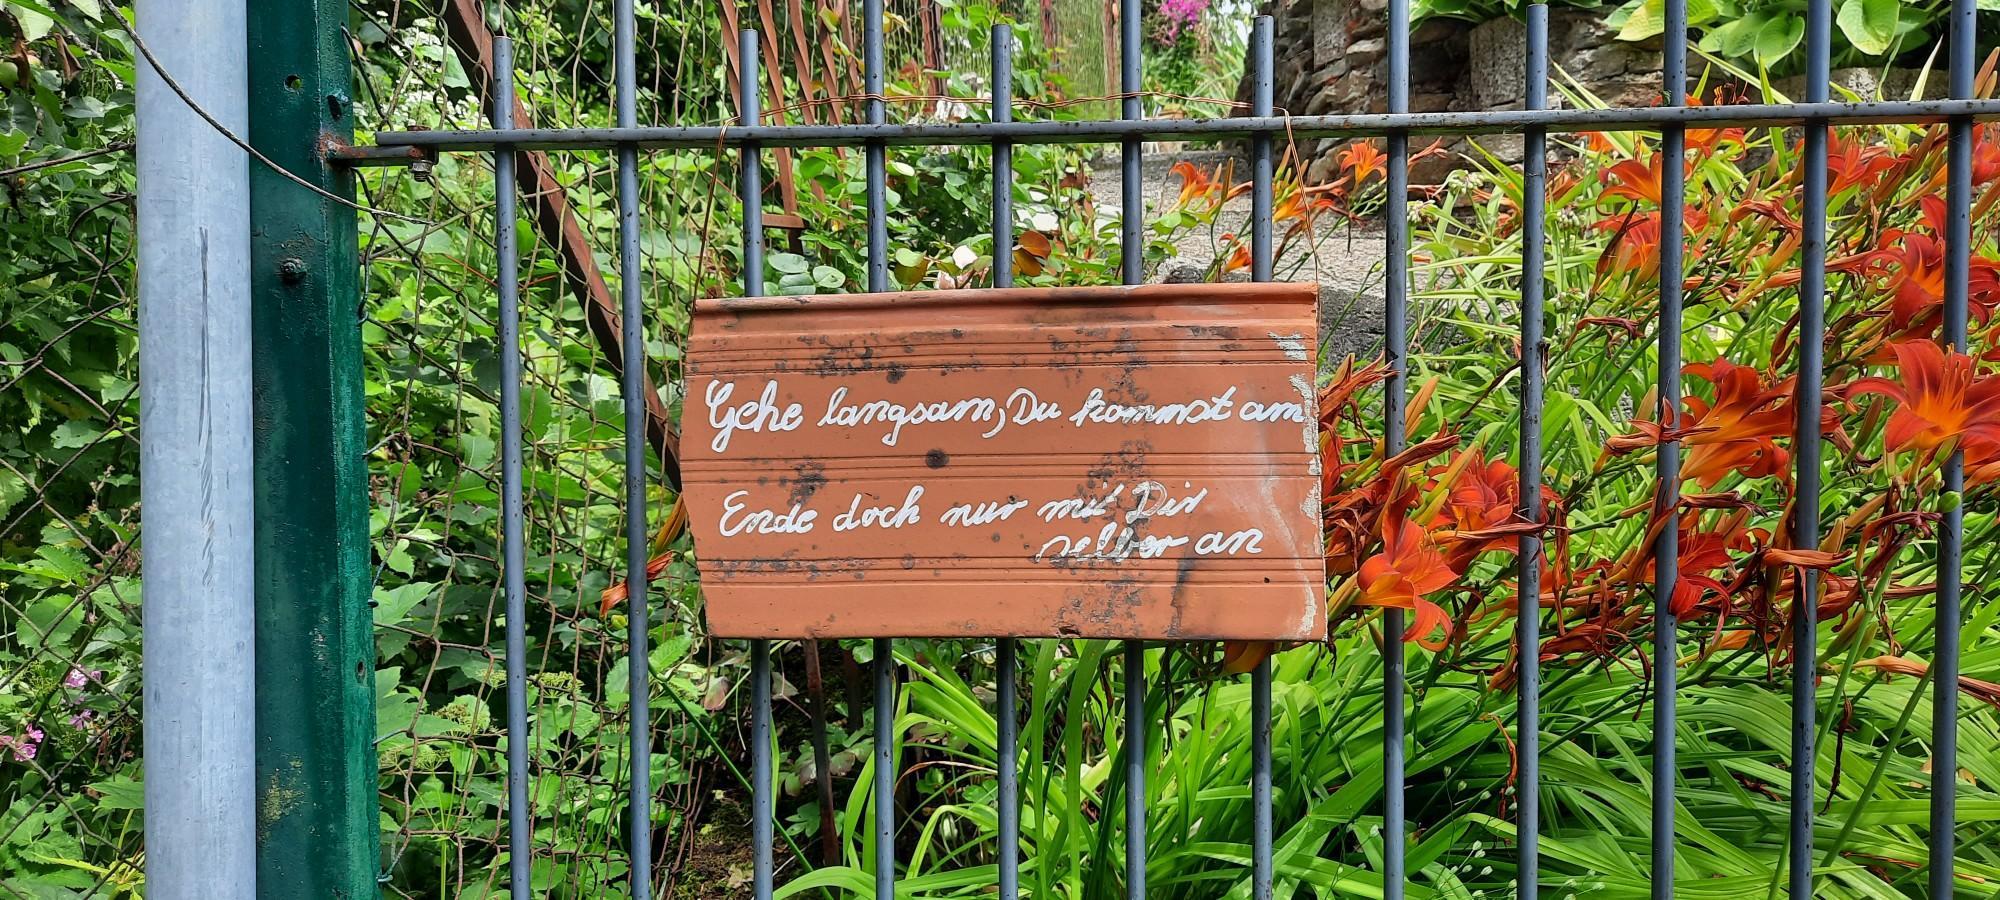 Gehe langsam, Du kommst am
Ende doch nur mit Dir
selber an